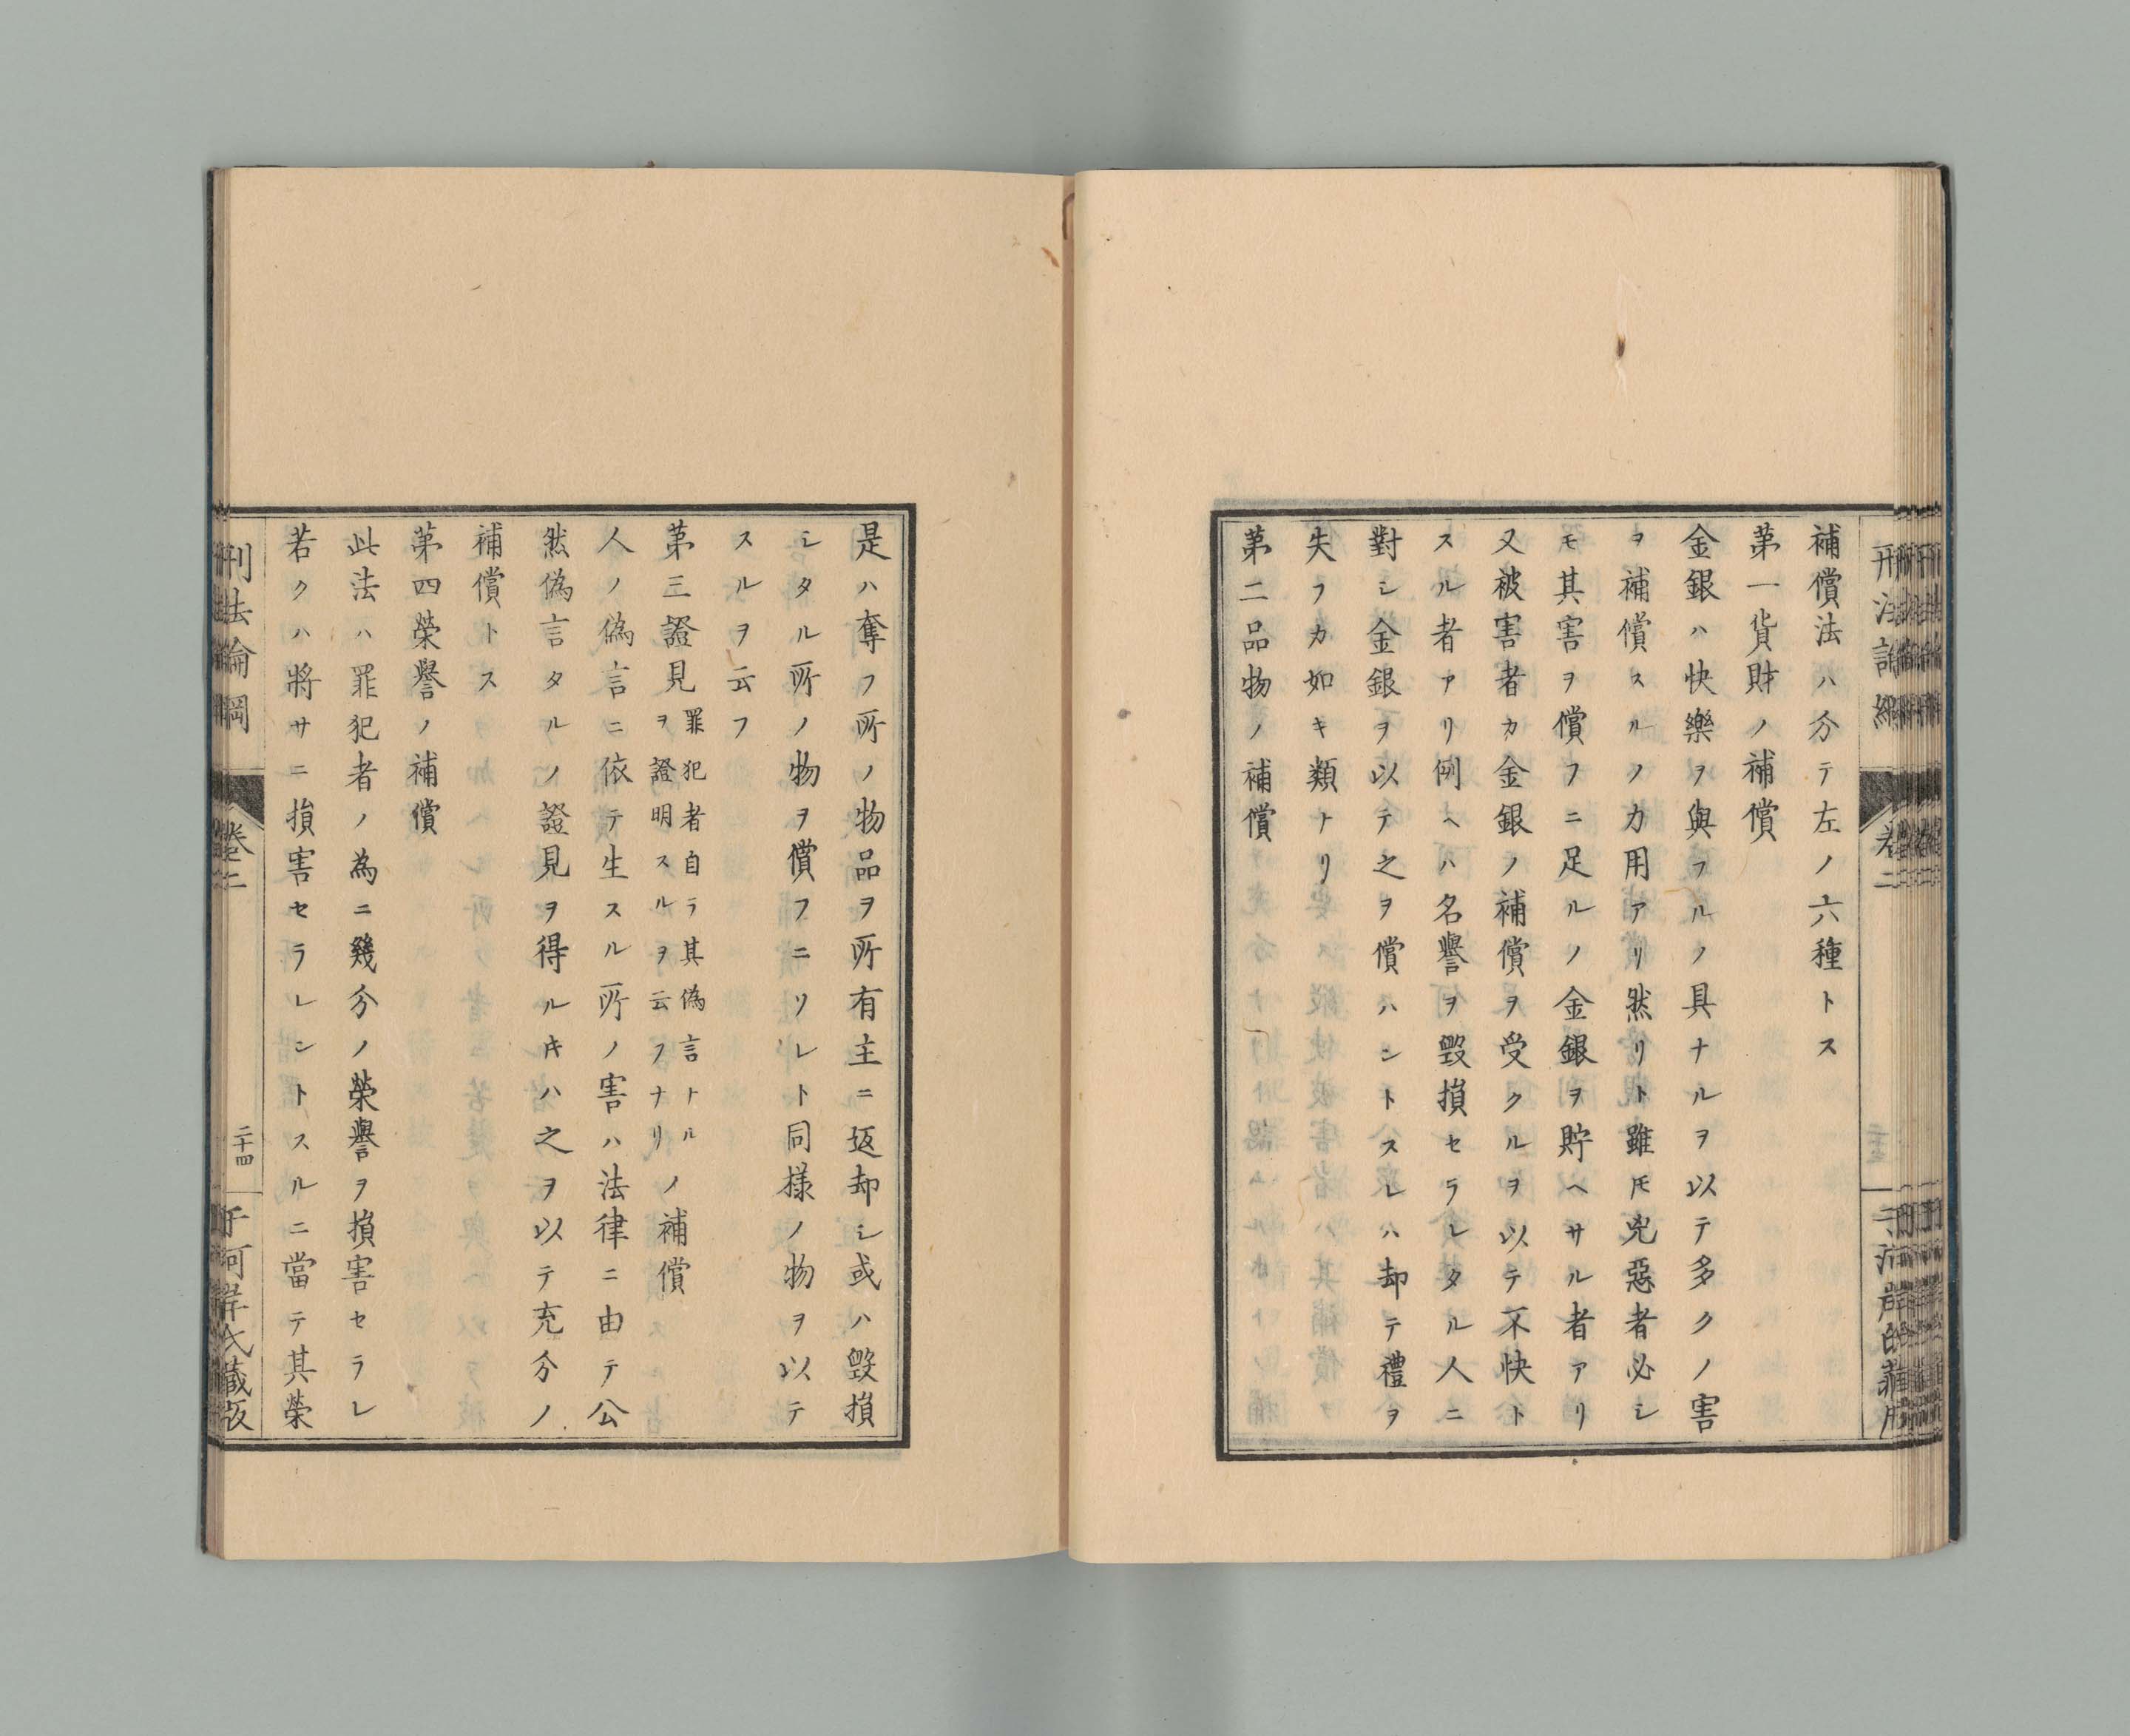 補償法ハ分テ左ノ六種トス
第一貨財ノ補償
金銀ハ快樂ヲ與フルノ具ナルヲ以テ多クノ害
ヲ補償スルノ力用アリ然リト雖𪜈兇惡者必シ
モ其害ヲ償フニ足ルノ金銀ヲ貯ヘサル者アリ
又被害者カ金銀ノ補償ヲ受クルヲ以テ不快ト
スル者アリ例ヘハ名譽ヲ毀損セラレタル人ニ
對シ金銀ヲ以テ之ヲ償ハントスレハ却テ禮ヲ
失フカ如キ類トリ
第二品物ノ補償
是ハ奪フ所ノ物品ヲ所有主ニ返却シ或ハ毀損
シタル所ノ物ヲ償フニリレト同様ノ物ヲ以テ
スルヲ云フ
第三證見罪犯者自ラ其偽言トルヲ證明スルヲ云フナリノ補償
人ノ偽言ニ依テ生スル所ノ害ハ法律ニ由テ公
然偽言タルノ證見ヲ得ルキハ之ヲ以テ充分ノ
補償トス
第四榮譽ノ補償
此法ハ罪犯者ノ為ニ幾分ノ榮譽ヲ損害セラレ
若クハ將サニ損害セラレントスルニ當テ其榮
刑法論綱
卷二
二十四